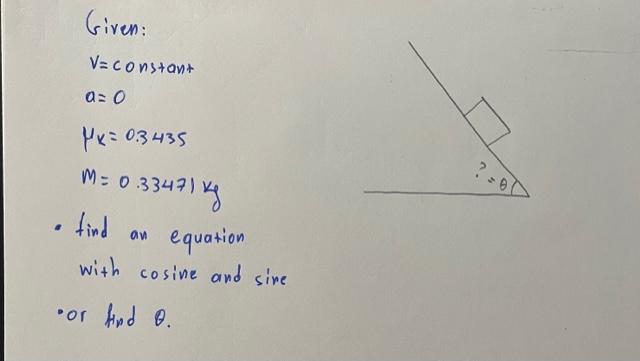 Given:
v=constant
a=0
μk=0.3435
m=0.33471 kg
• find an equation
with cosine and sine
• or find θ.
?=θ